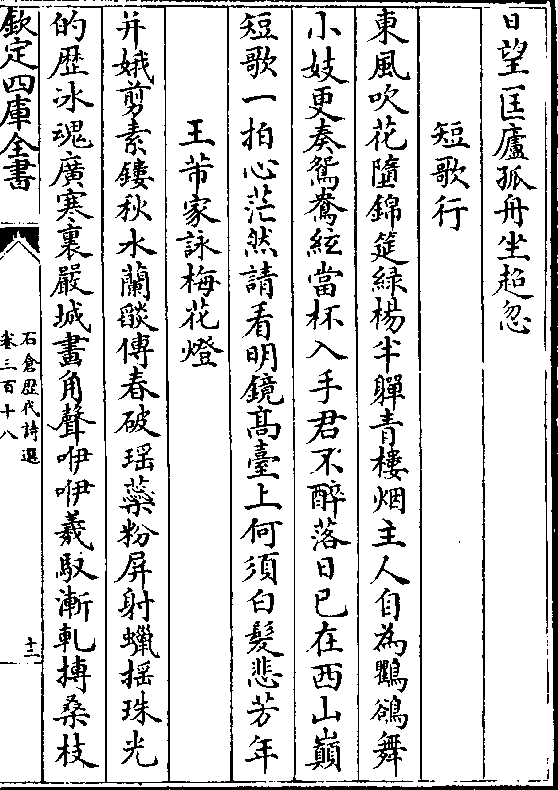 日望匡廬孤舟坐超忽
短歌行
東風吹花墮錦筵綠楊半嚲青樓烟主人自為鸜鵒舞
小妓更奏鴛鴦絃當杯入手君不醉落日已在西山巔
短歌一拍心茫然請看明鏡髙臺上何須白髮悲芳年
王芾家詠梅花燈
并娥剪素鏤秋水蘭燄傳春破瑶蘂粉屏射蠟揺珠光
的歴氷魂廣寒裏嚴城畫角聲咿咿羲馭漸軋搏桑枝
欽定四庫全書
石倉歴代詩選
卷三百十八
十二